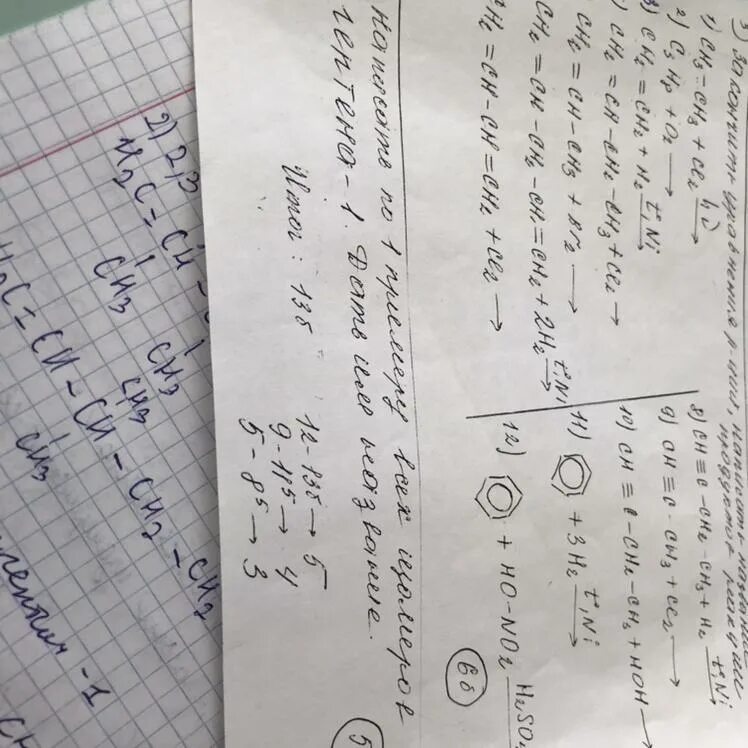 3) Закончить уравнения р-ций, написать назван
продуктов реакции
1) CH3-CH3 + Cl2 hν→
2) C3H8 + O2 →
3) CH2=CH2 + H2 t°,Ni→
CH2=CH-CH2-CH3 + Cl2 →
CH2=CH-CH3 + Br2 →
CH2=CH-CH2-CH=CH2 + 2H2 t°Ni→
CH2=CH-CH=CH2 + Cl2 →
8) CH≡C-CH2-CH3 + H2 t°,Ni→
9) CH≡C-CH3 + Cl2 →
10) CH≡C-CH2-CH3 + HOH →
11) + 3H2 t°,Ni→
12) + HO-NO2 H2SO4
6б
написать по 1 примеру всех изомеров
гептена-1. Дать им название.
5
Итог: 13б
12-13б → 5
9-11б → 4
5-8б → 3
2) 2,3
H2C=CH-
CH3 CH3
H2C=CH-CH-CH2-CH3
CH3
CH3
-1
CH